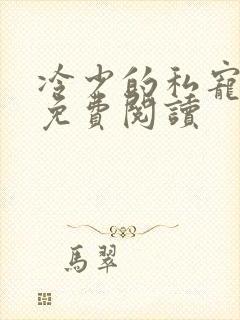 冷少的私寵
免費閱讀
馬翠